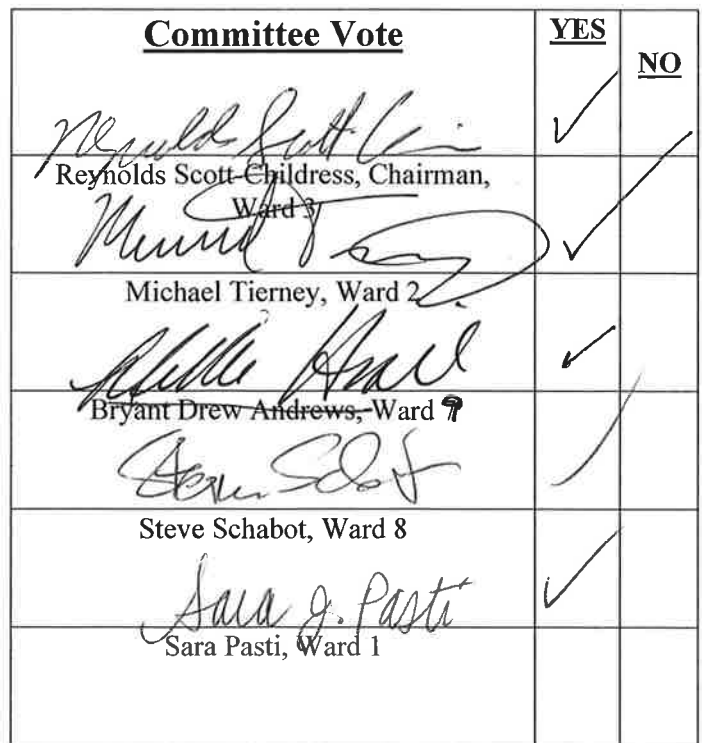 Committee Vote
YES
NO
Reynolds Scott
Reynolds Scott-Childress, Chairman,
Ward 3
Michael Tierney, Ward 2
Bryant Drew Andrews, Ward 9
Steve Schabot, Ward 8
Sara J. Pasti
Sara Pasti, Ward 1